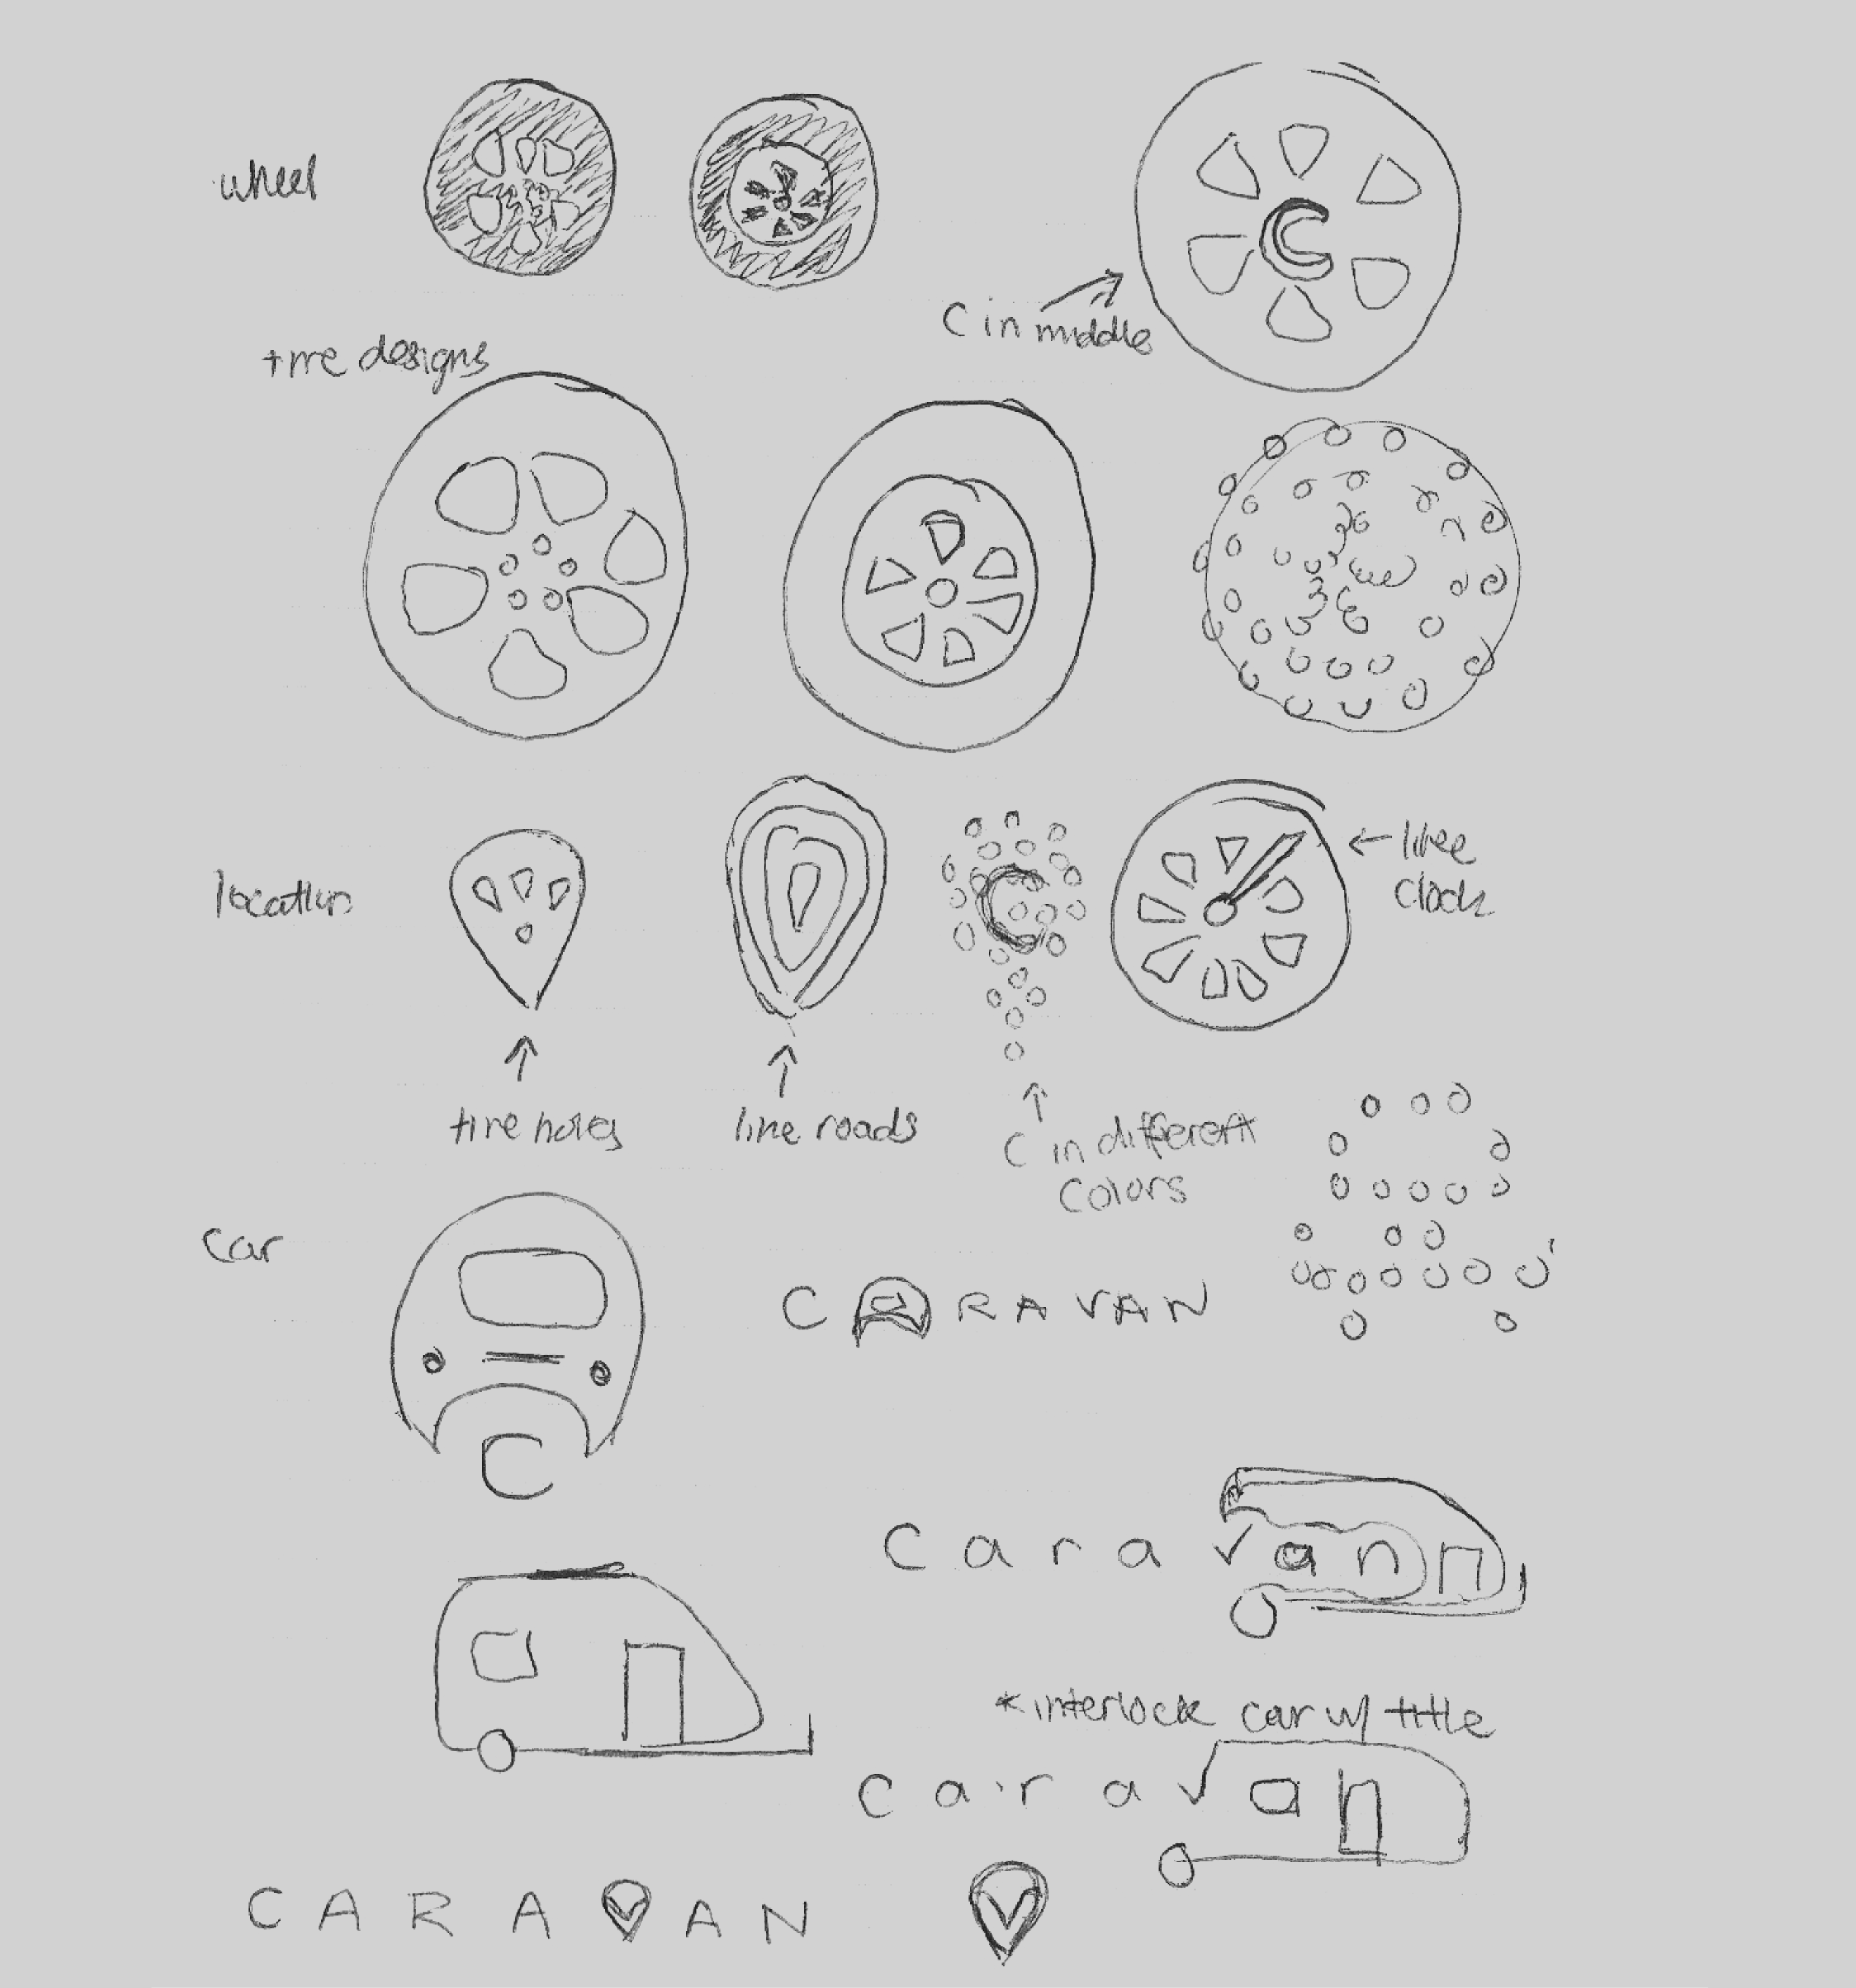 wheel
C
C in middle
tire designs
location
← like
clock
tire holes
line roads
C in different
colors
car
CARAVAN
C
caravan
*interlock car w/ title
caravan
CARAVAN
V